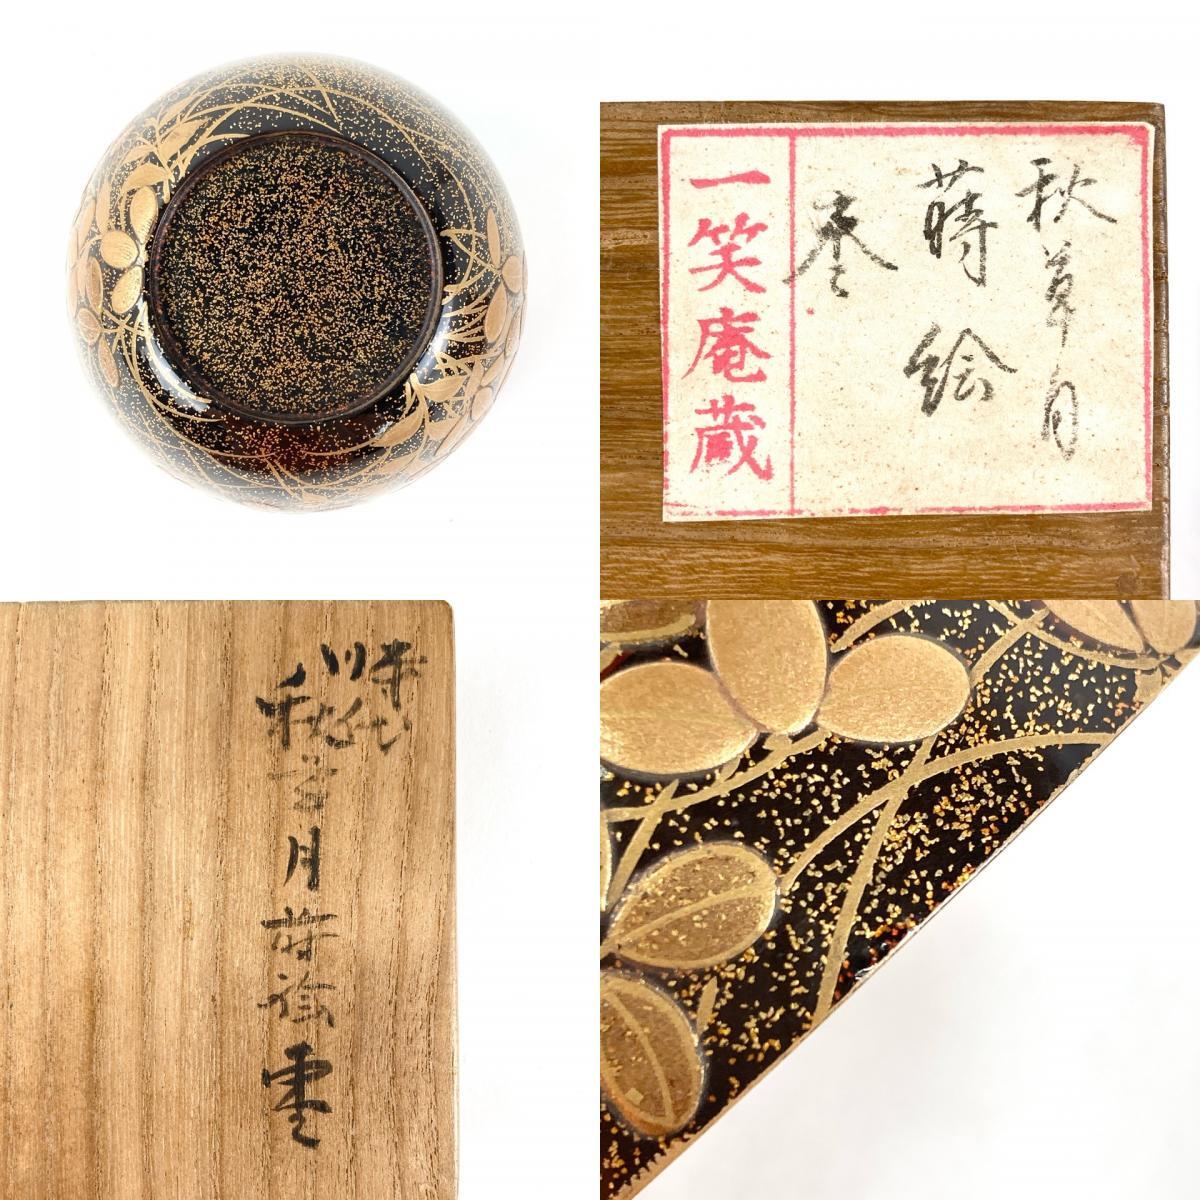 秋草月
蒔絵
枣
一笑庵蔵
秋草月蒔絵棗